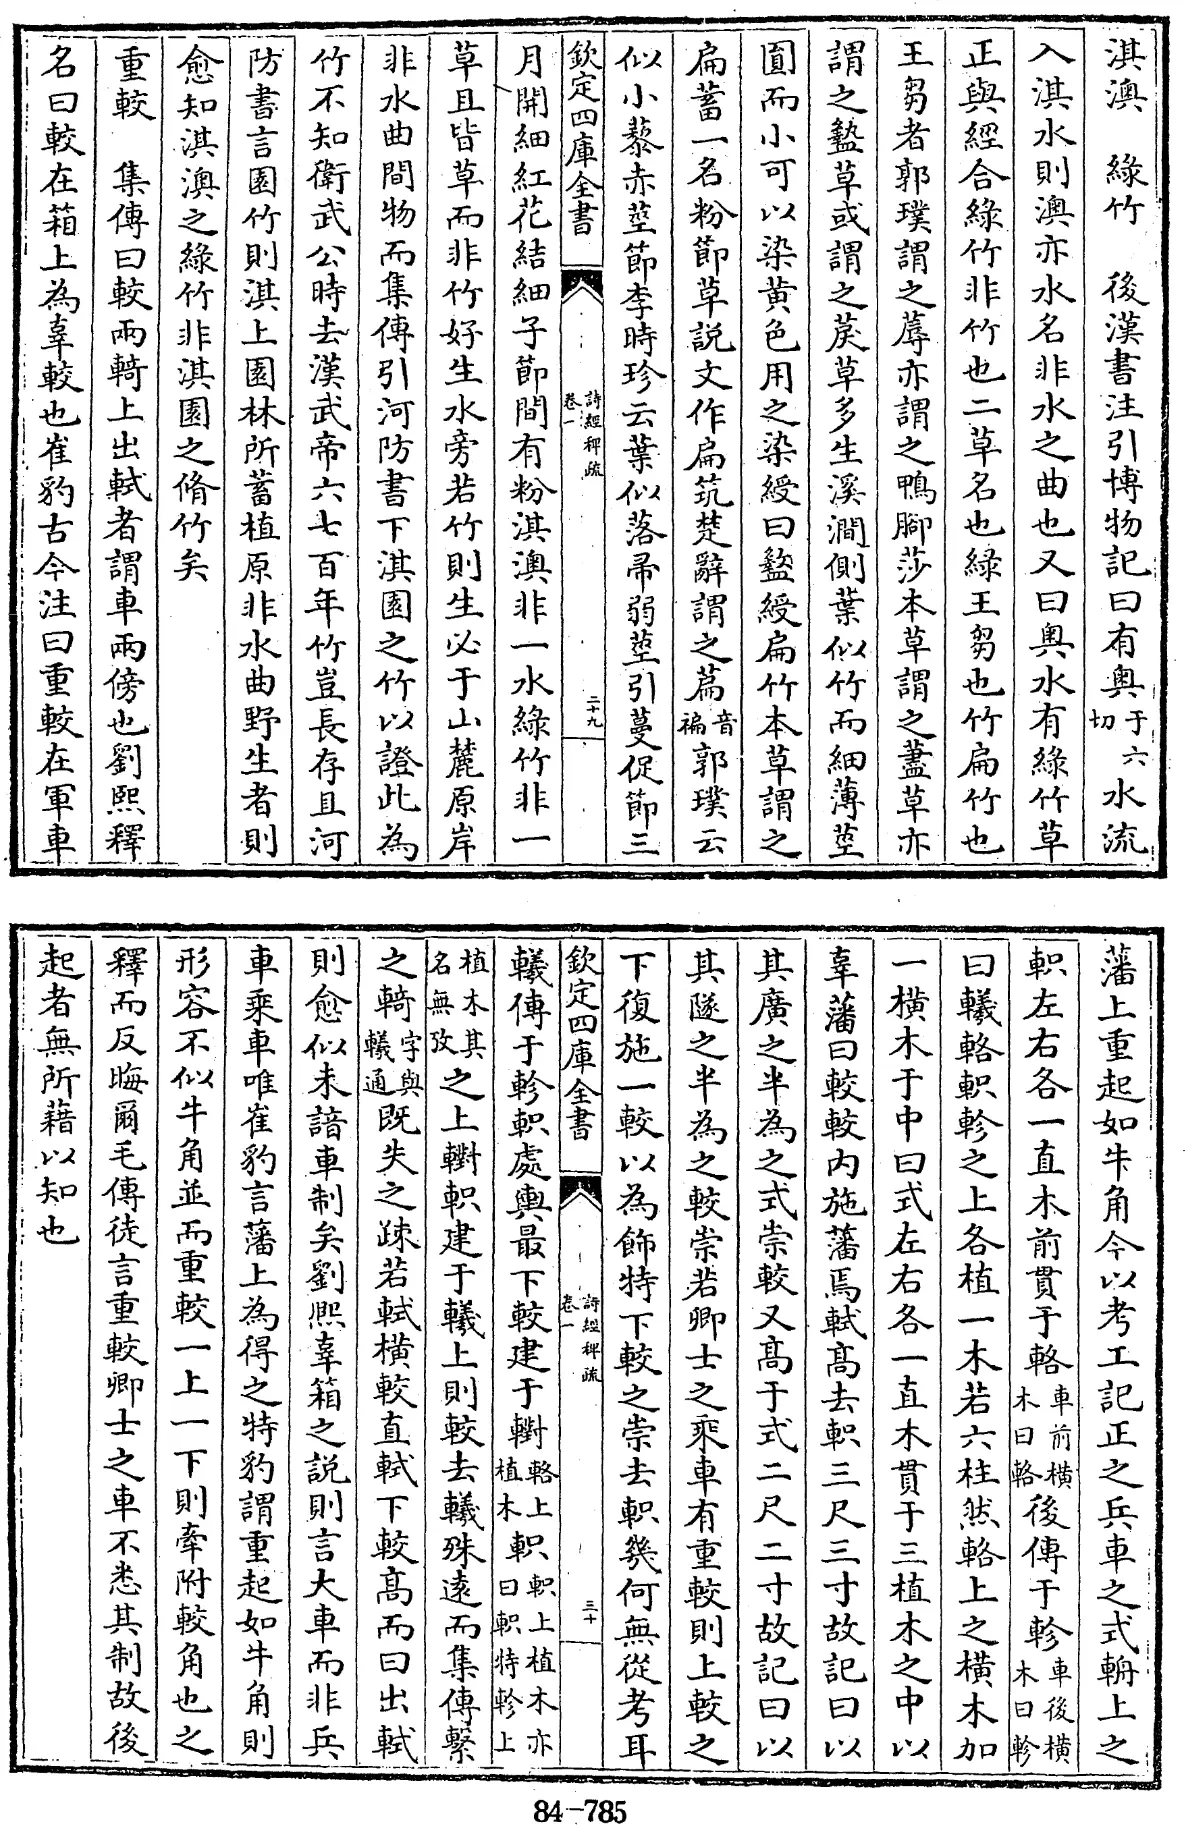 淇澳　綠竹　後漢書注引博物記曰有奥于六切水流
入淇水則澳亦水名非水之曲也又曰奥水有綠竹草
正與經合綠竹非竹也二草名也綠王芻也竹扁竹也
王芻者郭璞謂之蓐亦謂之鴨腳莎本草謂之藎草亦
謂之盭草或謂之菮草多生溪澗側葉似竹而細薄莖
圓而小可以染黃色用之染綬曰盭綬扁竹本草謂之
扁蓄一名粉節草説文作扁筑楚辭謂之萹音褊郭璞云
似小藜赤莖節李時珍云葉似落帚弱莖引蔓促節三
欽定四庫全書　詩經稗疏　卷一　二十九
月開細紅花結細子節間有粉淇澳非一水綠竹非一
草且皆草而非竹好生水旁若竹則生必于山麓原岸
非水曲間物而集傳引河防書下淇園之竹以證此為
竹不知衛武公時去漢武帝六七百年竹豈長存且河
防書言園竹則淇上園林所蓄植原非水曲野生者則
愈知淇澳之綠竹非淇園之脩竹矣
重較　集傳曰較兩輢上出軾者謂車兩傍也劉熙釋
名曰較在箱上為辜較也崔豹古今注曰重較在軍車
藩上重起如牛角今以考工記正之兵車之式輈上之
軹左右各一直木前貫于輅車前橫木曰輅後傳于軫車後橫木曰軫
曰轙輅軹軫之上各植一木若六柱然輅上之橫木加
一橫木于中曰式左右各一直木貫于三植木之中以
辜藩曰較較内施藩焉軾高去軹三尺三寸故記曰以
其廣之半為之式崇較又高于式二尺二寸故記曰以
其隧之半為之較崇若卿士之乘車有重較則上較之
下復施一較以為飾特下較之崇去軹幾何無從考耳
欽定四庫全書　詩經稗疏　卷一　三十
轙傳于軫軹處輿最下較建于轛輅上植木軹軹上植木亦曰軹特軫上
植木其名無攷之上轛軹建于轙上則較去轙殊遠而集傳繫
之輢字與轙通既失之疎若軾橫較直軾下較高而曰出軾
則愈似未諳車制矣劉熙辜箱之説則言大車而非兵
車乘車唯崔豹言藩上為得之特豹謂重起如牛角則
形容不似牛角並而重較一上一下則牽附較角也之
釋而反晦爾毛傳徒言重較卿士之車不悉其制故後
起者無所藉以知也
84-785